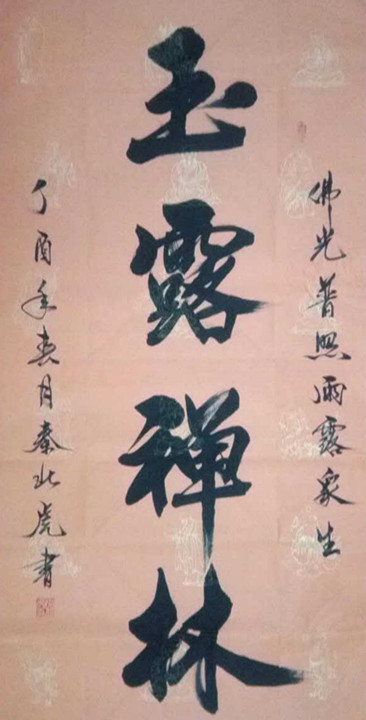 佛光普照雨露众生
玉露禅林
丁酉年春月秦北虎书